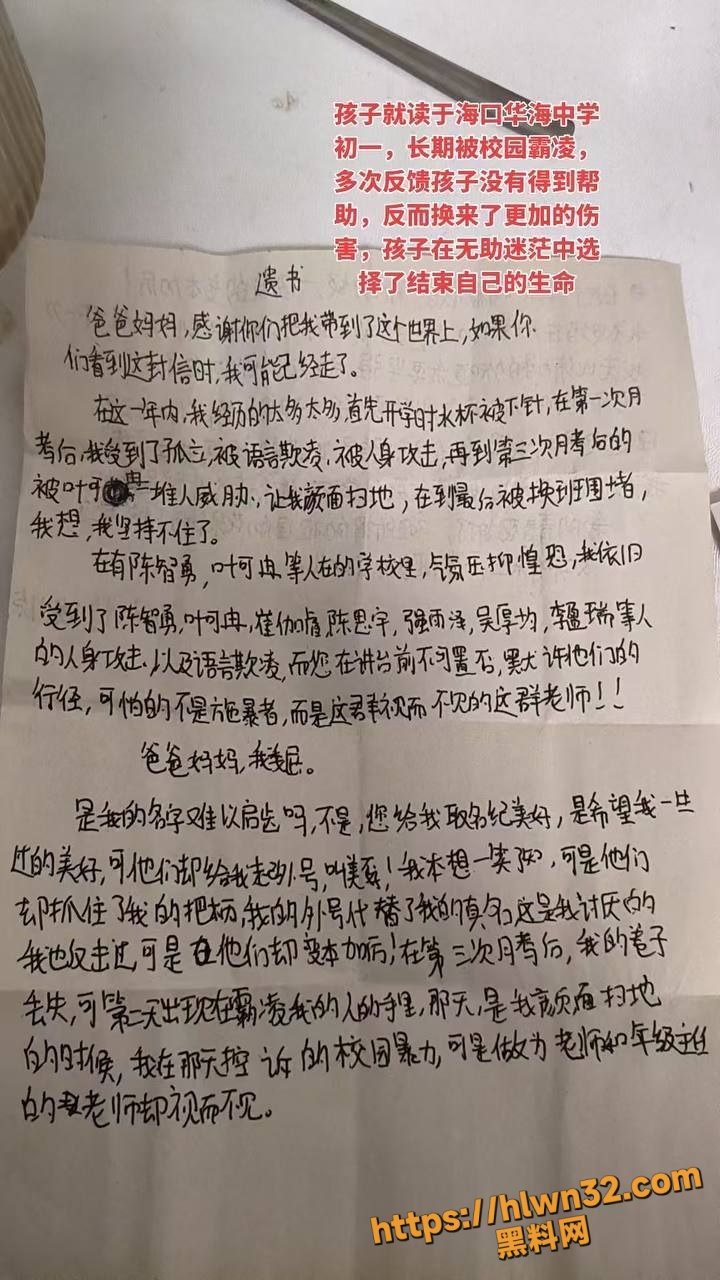 孩子就读于海口华海中学
初一，长期被校园霸凌，
多次反馈孩子没有得到帮
助，反而换来了更加的伤
害，孩子在无助迷茫中选
择了结束自己的生命
遗书
爸爸妈妈，感谢你们把我带到了这个世界上，如果你
们看到这封信时，我可能已经走了。
在这一年内，我经历的太多太多，首先开学时水杯被下针，在第一次月
考后，我受到了孤立，被语言欺凌，被人身攻击，再到第三次月考后的
被叶可冉一堆人威胁，让我颜面扫地，在到最后被换班围堵，
我想，我坚持不住了。
在有陈智勇，叶可冉等人在的学校里，气氛压抑惶恐，我依旧
受到了陈智勇，叶可冉，崔伽，陈思宇，强雨泽，吴厚均，瑞等人
的人身攻击，以及语言欺凌，而您在讲台前不可置否，默许他们的
行径，可怕的不是施暴者，而是这群视而不见的这群老师！！
爸爸妈妈，我委屈。
是我的名字难以启齿吗，不是，您给我取名纪美好，是希望我一生
过的美好，可他们却给我起外号，叫美！我本想一笑，可是他们
却抓住了我的把柄，我的外号代替了我的真名，这是我讨厌的
我也反击过，可是在他们却变本加厉！在第三次月考后，我的卷子
丢失，可第二天出现在霸凌我的人的手里，那天，是我颜面扫地
的时候，我在那天控诉的校园暴力，可是做为老师和年级主任
的老师却视而不见。
https://hlwn32.com
黑料网